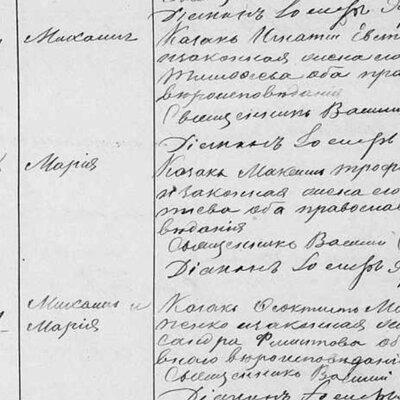 Діаконъ Іосифъ
Михаилъ
Козакъ Игнатій Евст
и законная жена его
Тимофеева оба пра
вероисповеданія
Священникъ Василій
Діаконъ Іосифъ
Марія
Козакъ Максимъ Троф
и законная жена его
оба православ
веданія
Священникъ Василій
Діаконъ Іосифъ
Михаилъ и
Марія
Козакъ Феоктистъ Ма
ненко и законная же
сандра Филиппова об
внаго вероисповеданія
Священникъ Василій
Діаконъ Іосифъ